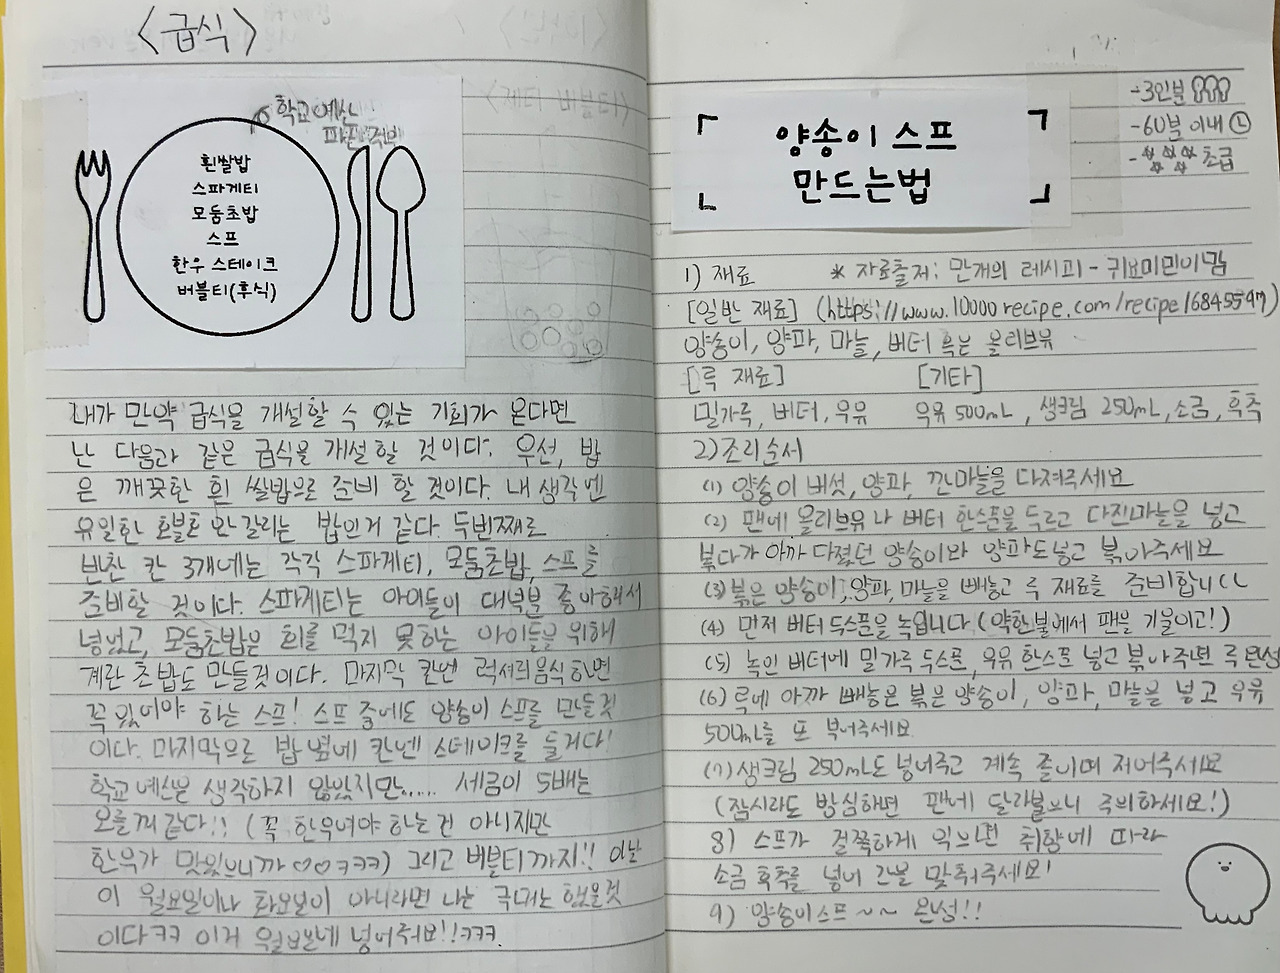 <급식>
학교 예산
파산 각
흰쌀밥
스파게티
모둠초밥
스프
한우 스테이크
버블티(후식)
내가 만약 급식을 개설할 수 있는 기회가 온다면
난 다음과 같은 급식을 개설할 것이다. 우선, 밥
은 깨끗한 흰 쌀밥으로 준비 할 것이다. 내 생각엔
유일한 호불호 안 갈리는 밥인거 같다. 두번째로
반찬 칸 3개에는 각각 스파게티, 모둠초밥, 스프를
준비할 것이다. 스파게티는 아이들이 대부분 좋아해서
넣었고, 모둠초밥은 회를 먹지 못하는 아이들을 위해
계란 초밥도 만들것이다. 마지막 칸엔 럭셔리음식하면
꼭 있어야 하는 스프! 스프 중에도 양송이 스프를 만들것
이다. 마지막으로 밥 옆에 칸엔 스테이크를 둘거다!
학교 예산은 생각하지 않았지만..... 세금이 5배는
오를꺼 같다!! (꼭 한우여야 하는건 아니지만
한우가 맛있으니까 ♡♡ㅋㅋㅋ) 그리고 버블티까지!! 이날
이 월요일이나 화요일이 아니라면 나는
이다ㅋㅋ 이거 넣어줘요!!ㅋㅋㅋ
-3인분
-60분 이내
-초급
양송이 스프
만드는법
1) 재료 * 자료출처: 만개의 레시피 - 귀요미민이맘
[일반 재료] (https://www.10000recipe.com/recipe/6845547)
양송이, 양파, 마늘, 버터 혹은 올리브유
[루 재료] [기타]
밀가루, 버터, 우유 우유 500mL, 생크림 250mL, 소금, 후추
2)조리순서
(1) 양송이 버섯, 양파, 깐마늘을 다져주세요
(2) 팬에 올리브유 나 버터 한스푼을 두르고 다진마늘을 넣고
볶다가 아까 다졌던 양송이와 양파도넣고 볶아주세요
(3)볶은 양송이, 양파, 마늘을 빼놓고 루 재료를 준비합니다
(4) 먼저 버터 두스푼을 녹입니다 (약한불에서 팬을 기울이고!)
(5) 녹인 버터에 밀가루 두스푼, 우유 한스푼 넣고 볶아주면 루 완성
(6) 루에 아까 빼놓은 볶은 양송이, 양파, 마늘을 넣고 우유
500mL를 또 부어주세요
(7) 생크림 250mL도 넣어주고 계속 졸이며 저어주세요
(잠시라도 방심하면 팬에 달라붙으니 주의하세요!)
8) 스프가 걸쭉하게 익으면 취향에 따라
소금 후추를 넣어 간을 맞춰주세요!
9) 양송이스프~~ 완성!!